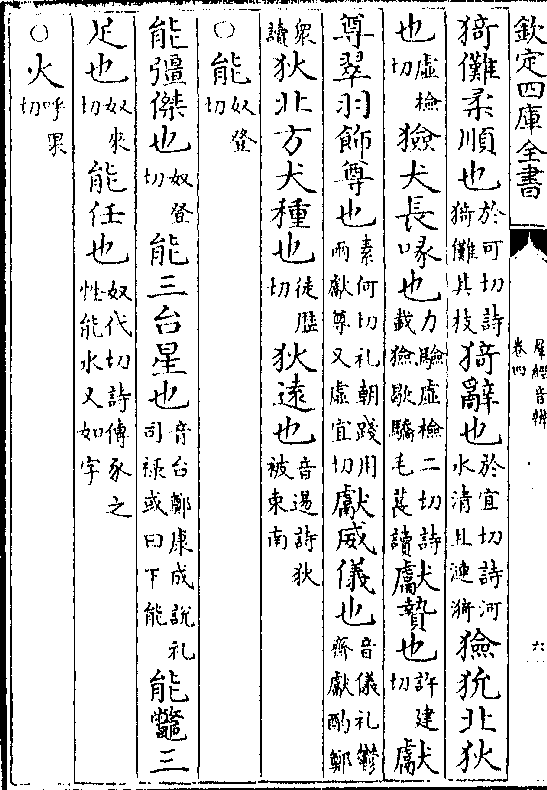 欽定四庫全書
羣經音辨
卷四
六
猗儺柔順也於可切詩猗儺其枝猗辭也於宜切詩河水清且漣猗獫狁北狄
也虛檢切獫犬長喙也力驗虛檢二切詩載獫歇驕毛萇讀獻贄也許建切獻
尊翠羽飾尊也素何切礼朝踐用兩獻尊又虛宜切獻威儀也音儀礼鬱齊獻酌鄭
衆讀狄北方犬種也徒歷切狄遠也音逷詩狄被東南
○能奴登切
能彊傑也奴登切能三台星也音台鄭康成說礼司祿或曰下能能鼈三
足也奴來切能任也奴代切詩傳豕之性能水又如字
○火呼果切